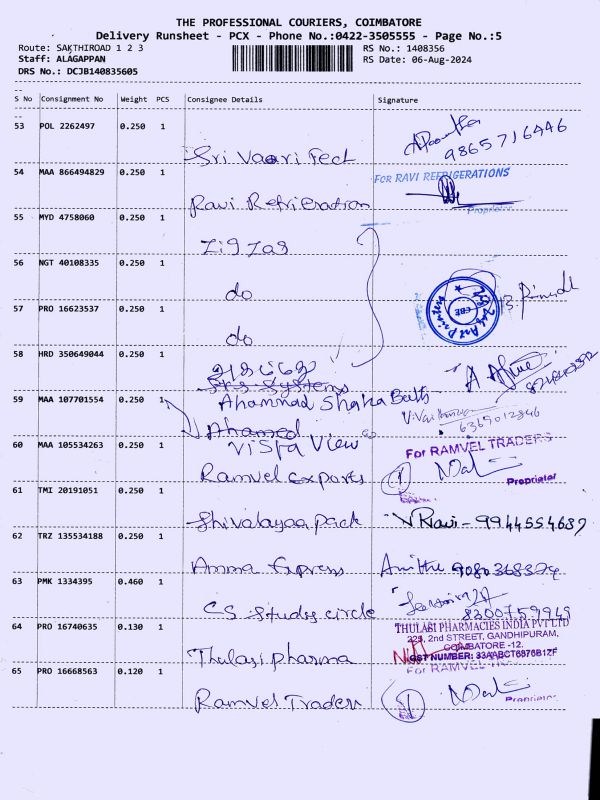 THE PROFESSIONAL COURIERS, COIMBATORE
Delivery Runsheet - PCX - Phone No.:0422-3505555 - Page No.:5
Route: SAKTHIROAD 1 2 3
RS No.: 1408356
Staff: ALAGAPPAN
RS Date: 06-Aug-2024
DRS No.: DCJB140835605
S No Consignment No Weight PCS Consignee Details Signature
53 POL 2262497 0.250 1
9865716446
Sri Vaari Tect
54 MAA 866494829 0.250 1
FOR RAVI REFRIGERATIONS
Ravi Refrigeration
Proprietor
55 MYD 4758060 0.250 1
Zig Zag
56 NGT 40108335 0.250 1
do
57 PRO 16623537 0.250 1
do
Zig Zag Art Printers
CBE
58 HRD 350649044 0.250 1
Sris Systems
59 MAA 107701554 0.250 1
Ahammad Shaka Bath
6369012846
Ahamed
60 MAA 105534263 0.250 1
Vista View
For RAMVEL TRADERS
Ramvel exports
Proprietor
61 TMI 20191051 0.250 1
Shivalayaa pack
V Ravi - 9944554687
62 TRZ 135534188 0.250 1
Amma Express
9080368379
63 PMK 1334395 0.460 1
CS Study circle
8300759949
64 PRO 16740635 0.130 1
THULASI PHARMACIES INDIA PVT LTD
2nd STREET, GANDHIPURAM,
COIMBATORE -12.
Thulasi pharma
GST NUMBER: 33AABCT6876B1ZF
65 PRO 16668563 0.120 1
For RAMVEL
Ramvel Traders
Proprietor